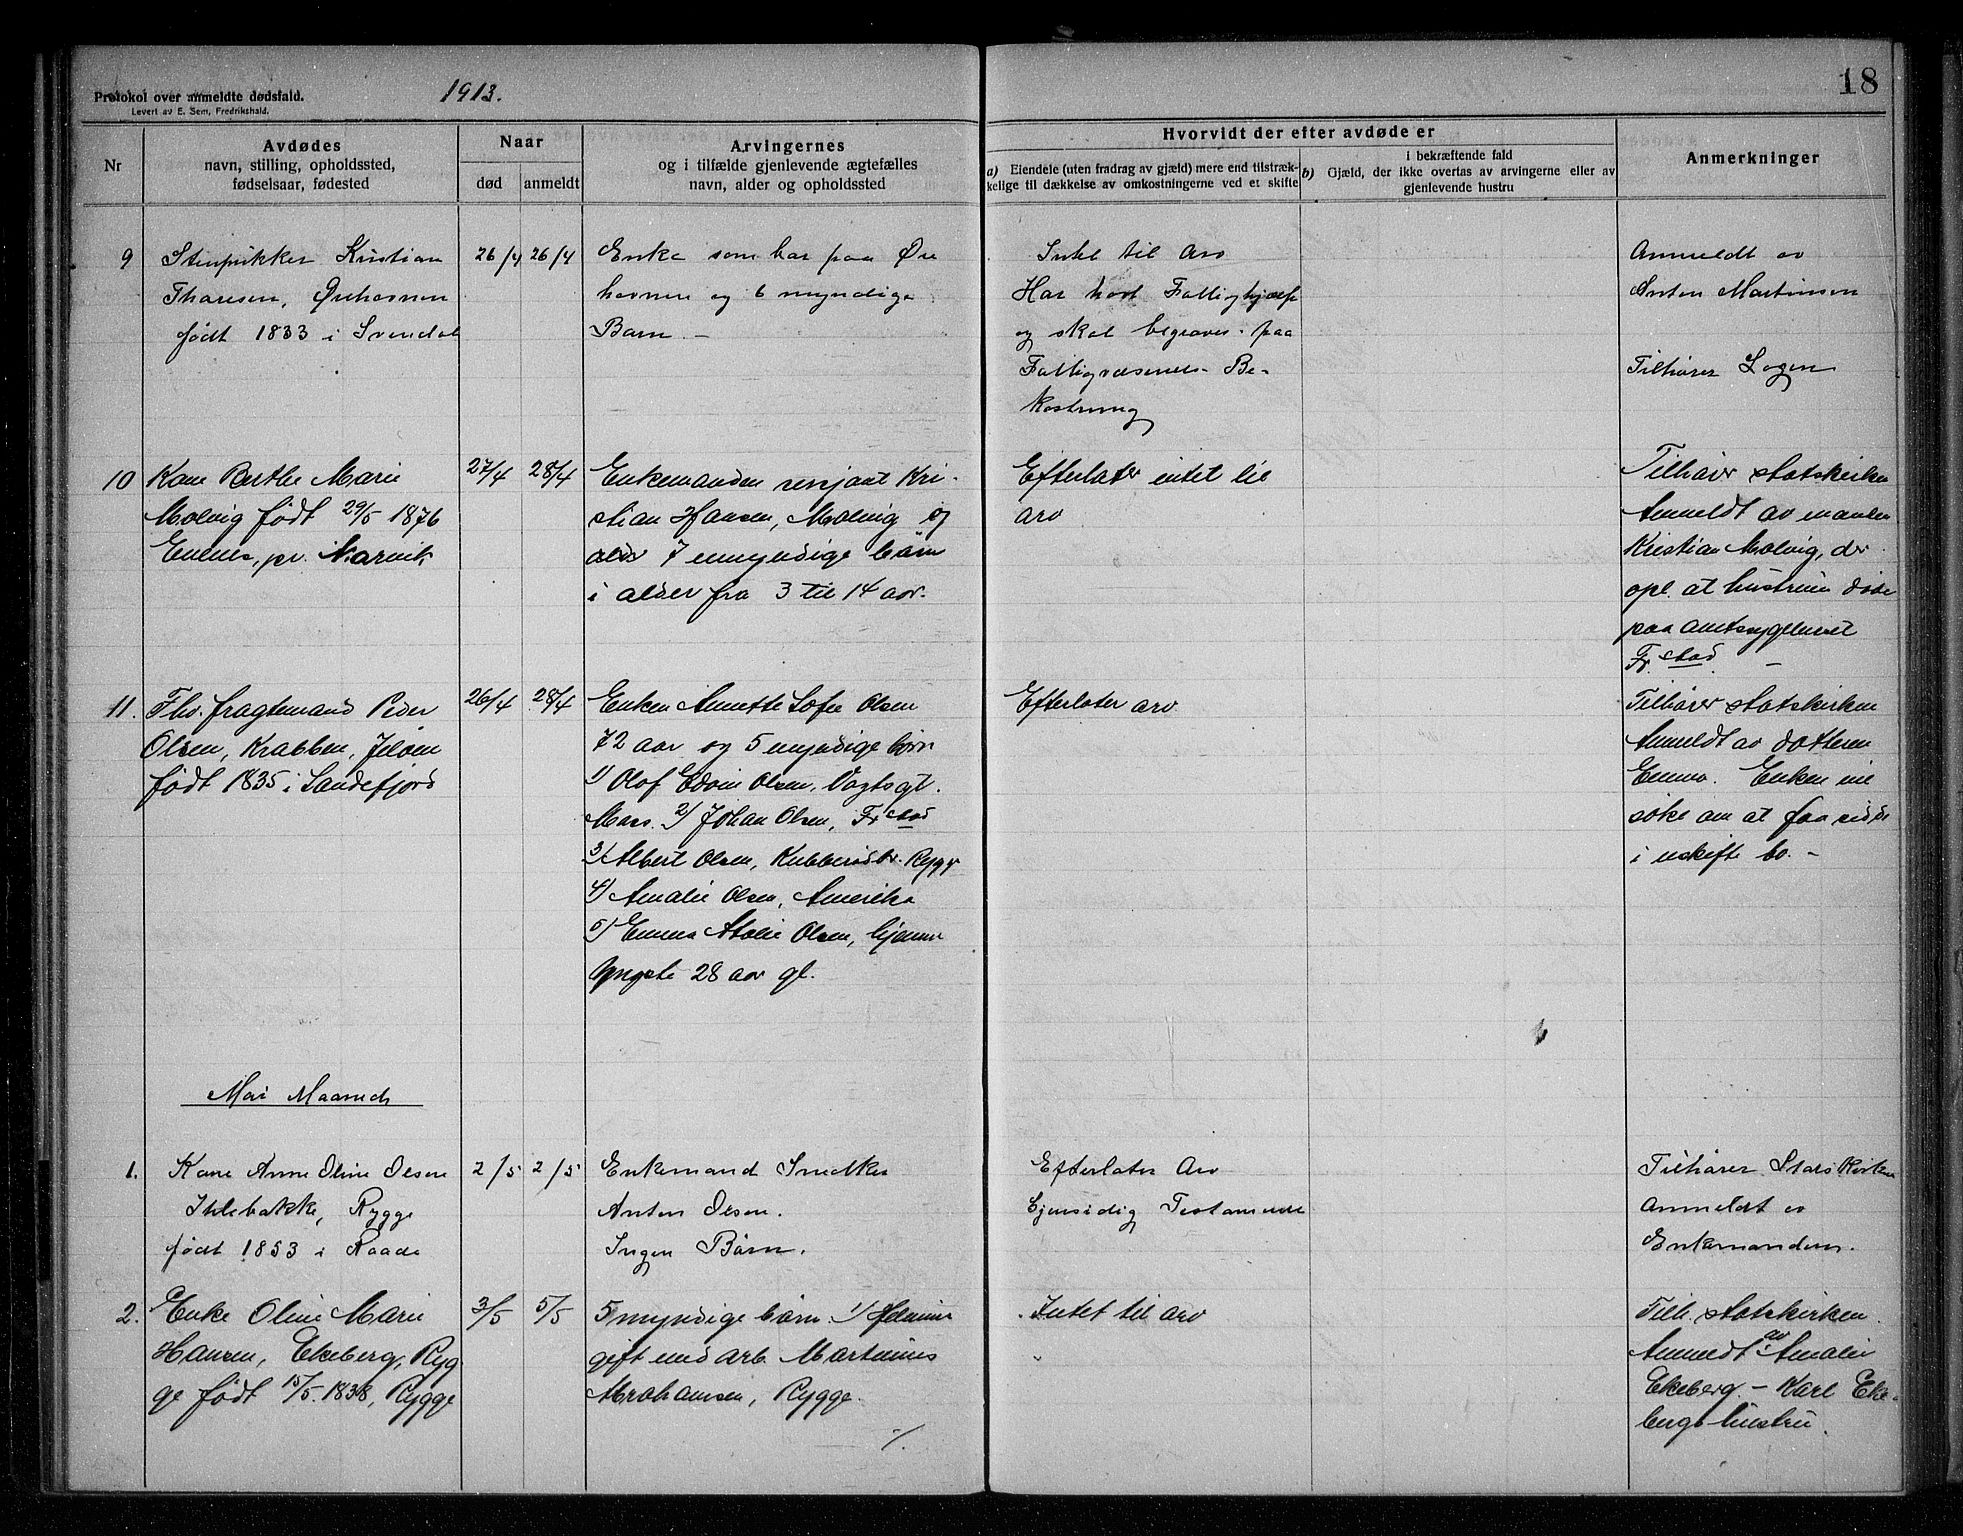 Protokol over anmeldte dødsfald.
Levert av E. Sem, Fredrikshald.
1913.
18
Nr
Avdødes
navn, stilling, opholdssted,
fødselsaar, fødested
Naar
død
anmeldt
Arvingernes
og i tilfælde gjenlevende ægtefælles
navn, alder og opholdssted
Hvorvidt der efter avdøde er
a) Eiendele (uten fradrag av gjæld) mere end tilstræk-
kelige til dækkelse av omkostningerne ved et skifte
i bekræftende fald
b) Gjæld, der ikke overtas av arvingerne eller av
gjenlevende hustru
Anmerkninger
9
Stenpikker Kristian
Thoresen,
født 1833 i Svendal
26/4
26/4
Enke som bor paa Øre
havnen og 6 myndige
Barn. –
Intet til Arv
Har havt Fattighjælp
og skal begraves paa
Fattigvæsenets Be-
kostning
Anmeldt av
Anton Martinsen
Tilhører Logen
10
Kone Berthe Marie
Molvig født 29/5 1876
Emnes, pr. Narvik
27/4
28/4
Enkemanden sersjant Kri-
stian Hansen, Molvig og
7 umyndige børn
i alder fra 3 til 14 aar.
Efterlater intet til
arv
Tilhører statskirken
Anmeldt av manden
Kristian Molvig, der
opl. at hustruen døde
paa amtssygehuset
Fr.stad. –
11.
Fhv. fragtemand Peder
Olsen, Krabben, Jeløen
født 1835 i Sandefjord
26/4
28/4
Enken Annette Sofie Olsen
72 aar og 5 myndige børn
1) Olof Edvin Olsen, Vogtsgt.
Moss. 2) Johan Olsen, Fr.stad
3) Albert Olsen, Kubberødbr. Rygge
4) Amalie Olsen, Amerika
5) Emma Atalie Olsen, hjemme
Yngste 28 aar gl.
Efterlater arv
Tilhører statskirken
Anmeldt av datteren
Emma. Enken vil
søke om at faa sidde
i uskifte bo. –
Mai Maaned
1.
Kone Anne Oline Olsen
Ihlebakke, Rygge
født 1853 i Raade
2/5
2/5
Enkemand Snedker
Anton Olsen.
Ingen Børn.
Efterlater Arv
Gjensidig Testamente
Tilhører Statskirken
Anmeldt av
Enkemanden.
2.
Enke Oline Marie
Hansen, Ekeberg, Ryg
ge født 15/5. 1838, Rygge
3/5
5/5
5 myndige børn. 1)
gift med arb. Martinius
Abrahamsen, Rygge.
%.
Intet til arv
Tilh. statskirken.
Anmeldt av Amalie
Ekeberg. – Karl Eke-
bergs hustru.